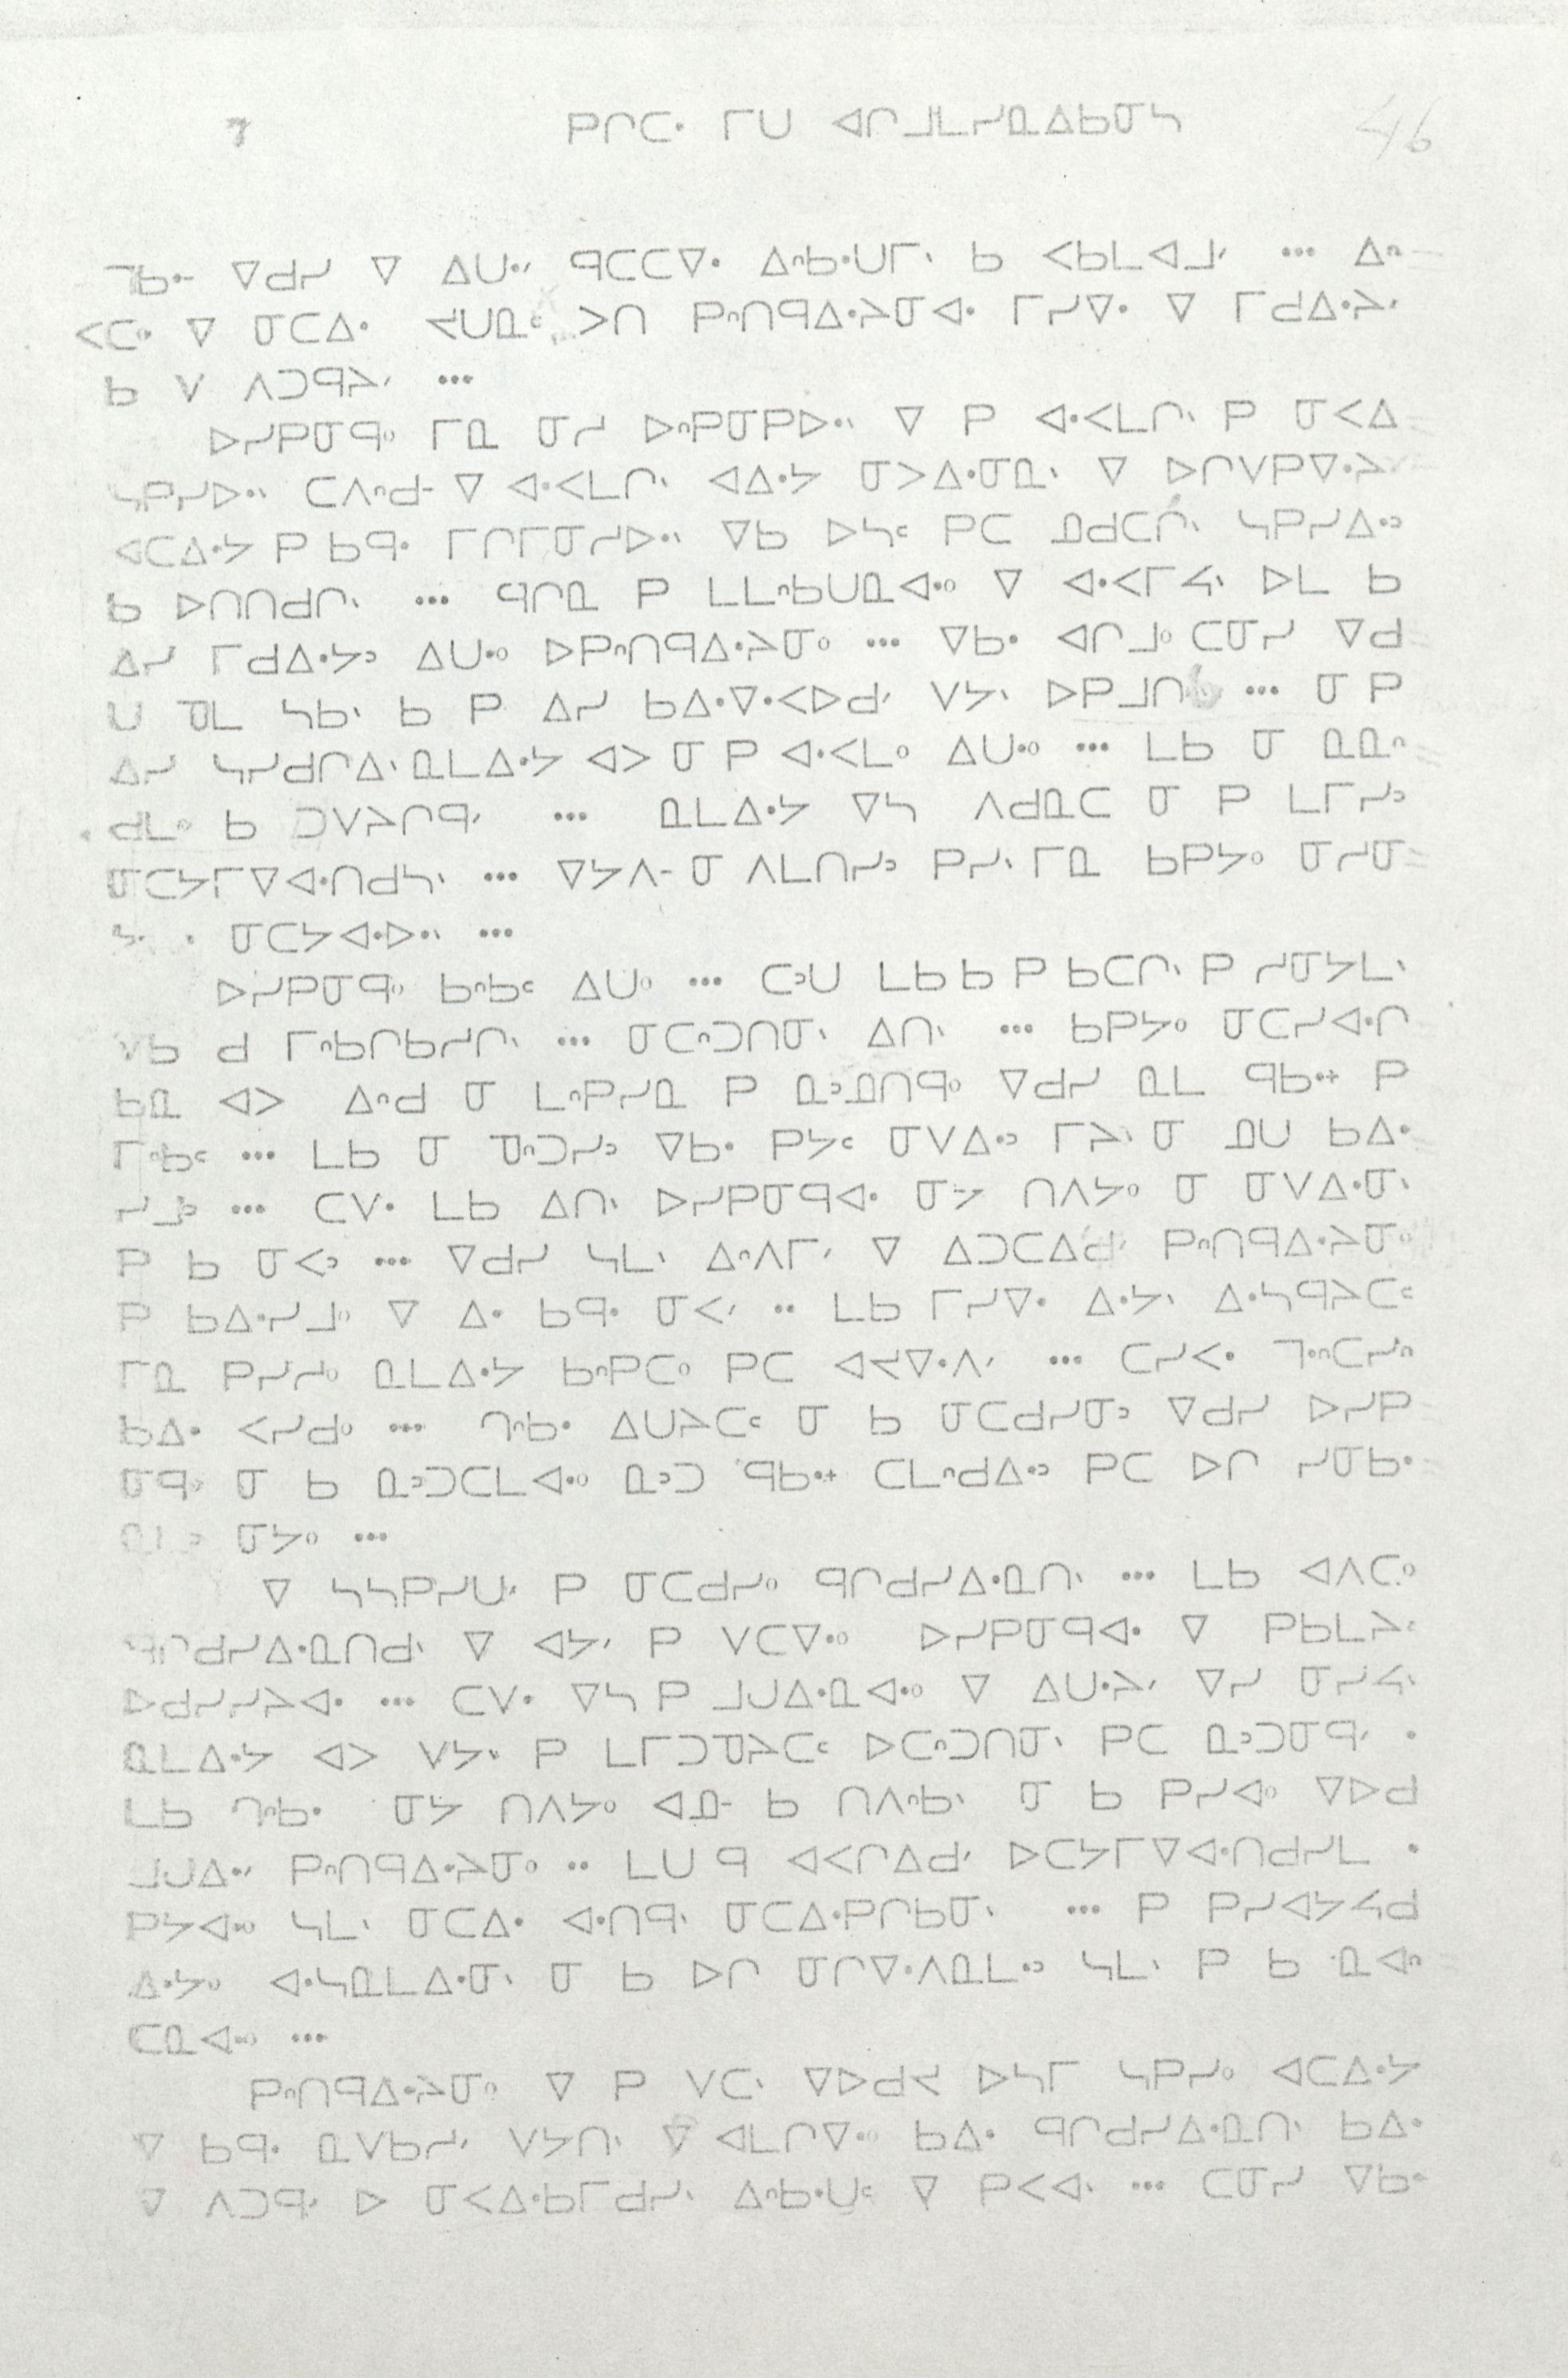 7 ᑭᒋᑕᐧ ᒥᑌ ᐊᒋᒧᒪᓯᓇᐃᑲᓂᓴ 46
ᐁᑯᓯ ᐁ ᐃᑌᐧᐟ ᑫᑕᑕᐁᐧ ᐃᐢᑲᐧᑌᒥᐠ ᑲ ᐸᑲᒪᐊᒧᐟ ••• ᐃᐢ
ᐸᑕᐤ ᐁ ᓂᑕᐃᐧ ᐸᑌᓇᒼ ᐳᑎ ᑭᐢᑎᑫᐃᐧᔨᓂᐊᐧ ᒥᓯᐁᐧ ᐁ ᒥᑯᐃᐧᔨᐟ
ᑲ ᐯ ᐱᑐᑫᔨᐟ •••
ᐅᓯᑭᓂᑫᐤ ᒥᓇ ᓂᓯ ᐅᐢᑭᓂᑭᐅᐧᐠ ᐁ ᑭ ᐊᐧᐸᒪᒋᐠ ᑭ ᓂᐸᐃ
ᓴᑭᓯᐅᐧᐠ ᑕᐱᐢᑯ- ᐁ ᐊᐧᐸᒪᒋᐠ ᐊᐃᐧᔭ ᓂᐳᐃᐧᓂᓇᐠ ᐁ ᐅᒋᐯᑭᐁᐧᔨ
ᐊᑕᐃᐧᔭ ᑭ ᑲᑫᐧ ᒥᒋᒥᓂᓯᐅᐧᐠ ᐁᑲ ᐅᓴᒼ ᑭᑕ ᓄᑯᑕᒋᐠ ᓴᑭᓯᐃᐧᐣ
ᑲ ᐅᑎᑎᑯᒋᐠ ••• ᑫᒋᓇ ᑭ ᒪᒪᐢᑲᑌᓇᐊᐧᐤ ᐁ ᐊᐧᐸᒥᔭᐠ ᐅᒪ ᑲ
ᐃᓯ ᒥᑯᐃᐧᔭᐣ ᐃᑌᐧᐤ ᐅᑭᐢᑎᑫᐃᐧᔨᓂᐤ ••• ᐁᑲᐧ ᐊᒋᒧᐤ ᑕᓂᓯ ᐁᑯ
ᑌ ᓀᒪ ᓴᑲᐠ ᑲ ᑭ ᐃᓯ ᑲᐃᐧᐁᐧᐸᐅᑯᐟ ᐯᔭᐠ ᐅᑭᒧᑎ ••• ᓂ ᑭ
ᐃᓯ ᓴᓯᑯᒋᐃᐠ ᓇᒪᐃᐧᔭ ᐊᐳ ᓂ ᑭ ᐊᐧᐸᒪᐤ ᐃᑌᐧᐤ ••• ᒪᑲ ᓂ ᓇᓇᐢ
ᑯᒪᐤ ᑲ ᑐᐯᔨᒋᑫᐟ ••• ᓇᒪᐃᐧᔭ ᐁᓴ ᐱᑯᓇᑕ ᓂ ᑭ ᒪᒥᓯᐣ
ᓂᑕᔭᒥᐁᐊᐧᑎᑯᓴᐠ ••• ᐁᔭᐱ- ᓂ ᐱᒪᑎᓯᐣ ᑭᓯᐠ ᒥᓇ ᑲᑭᔭᐤ ᓂᓯᓂ
ᓂᑕᔭᐊᐧᐅᐧᐠ •••
ᐅᓯᑭᓂᑫᐤ ᑲᐢᑲᒼ ᐃᑌᐤ ••• ᑕᐣᑌ ᒪᑲ ᑲ ᑭ ᑲᑕᒋᐠ ᑭ ᓯᓂᔭᒪᐠ
ᐁᑲ ᑯ ᒥᐢᑲᒋᑲᓯᒋᐠ ••• ᓂᑕᐢᑐᑎᓂᐠ ᐃᑎᐠ ••• ᑲᑭᔭᐤ ᓂᑕᓯᐊᐧᒋ
ᑲᓇ ᐊᐳ ᐃᐢᑯ ᓂ ᒪᐢᑭᓯᓇ ᑭ ᓇᐣᓄᑎᑫᐤ ᐁᑯᓯ ᓇᒪ ᑫᑲᐧᐩ ᑭ
ᒥᐢᑲᒼ ••• ᒪᑲ ᓂ ᓀᐢᑐᓯᐣ ᐁᑲᐧ ᑭᔭᒼ ᓂᐯᐃᐧᐣ ᒥᔨᐠ ᓂ ᓄᑌ ᑲᐃᐧ
ᓯᒧᐣ ••• ᑕᐯᐧ ᒪᑲ ᐃᑎᐠ ᐅᓯᑭᓂᑫᐊᐧ ᓂᔭ ᑎᐱᔭᐤ ᓂ ᓂᐯᐃᐧᓂᐠ
ᑭ ᑲ ᓂᐸᐣ ••• ᐁᑯᓯ ᓴᒪᐠ ᐃᐢᐱᒥᐟ ᐁ ᐃᑐᑕᐃᑯᐟ ᑭᐢᑎᑫᐃᐧᔨᓂᐤ
ᑭ ᑲᐃᐧᓯᒧᐤ ᐁ ᐃᐧ ᑲᑫᐧ ᓂᐸᐟ •• ᒪᑲ ᒥᓯᐁᐧ ᐃᐧᔭᐠ ᐃᐧᓴᑫᔨᑕᒼ
ᒥᓇ ᑭᓯᓱᐤ ᓇᒪᐃᐧᔭ ᑲᐢᑭᑕᐤ ᑭᑕ ᐊᔦᐁᐧᐱᐟ ••• ᑕᓯᐸᐧ ᒣᐧᐢᑕᓯᐢ
ᑲᐃᐧ ᐸᓯᑯᐤ ••• ᒉᐢᑲᐧ ᐃᑌᔨᑕᒼ ᓂ ᑲ ᓂᑕᑯᓯᓂᐣ ᐁᑯᓯ ᐅᓯᑭ
ᓂᑫᐤ ᓂ ᑲ ᓇᐣᑐᑕᒪᐊᐧᐤ ᓇᐣᑐ ᑫᑲᐧᐩ ᑕᒪᐢᑯᐃᐧᐣ ᑭᑕ ᐅᒋ ᓯᓂᑲᐧ
ᓂᔭᐤ •••
ᐁ ᓴᓴᑭᓯᑌᐟ ᑭ ᓂᑕᑯᓯᐤ ᑫᒋᑯᓯᐃᐧᓇᑎᐠ ••• ᒪᑲ ᐊᐱᑕᐤ
ᑫᒋᑯᓯᐃᐧᓇᑎᑯᐠ ᐁ ᐊᔭᐟ ᑭ ᐯᑕᐁᐧᐤ ᐅᓯᑭᓂᑫᐊᐧ ᐁ ᑭᑲᒪᔨᐟ
ᐅᑯᓯᓯᔨᐊᐧ ••• ᑕᐯᐧ ᐁᓴ ᑭ ᒧᒍᐃᐧᓇᐊᐧᐤ ᐁ ᐃᑌᐧᔨᐟ ᐁᓯ ᓂᓯᔭᐠ
ᓇᒪᐃᐧᔭ ᐊᐳ ᐯᔭᐠ ᑭ ᒪᒥᑐᓀᔨᑕᒼ ᐅᑕᐢᑐᑎᓂᐠ ᑭᑕ ᓇᐣᑐᓂᑫᐟ •
ᒪᑲ ᒉᐢᑲᐧ ᓂᔭ ᑎᐱᔭᐤ ᐊᓄ- ᑲ ᑎᐱᐢᑲᐠ ᓂ ᑲ ᑭᓯᐊᐤ ᐁᐅᑯ
ᒧᒍᐃᐧᐟ ᑭᐢᑎᑫᐃᐧᔨᓂᐤ •• ᒪᑌ ᑫ ᐊᐸᒋᐃᑯᐟ ᐅᑕᔭᒥᐁᐊᐧᑎᑯᓯᒪ •
ᑭᔭᐊᐧᐤ ᓴᒪᐠ ᓂᑕᐃᐧ ᐊᐧᑎᑫᐠ ᓂᑕᐃᐧᑭᒋᑲᓂᐠ ••• ᑭ ᑭᓯᐊᔭᔭᑯ
ᐃᐧᔭᐤ ᐊᐧᓴᓇᒪᐃᐧᓂᐠ ᓂ ᑲ ᐅᒋ ᓂᒋᐁᐧᐱᓇᒪᐧᐣ ᓴᒪᐠ ᑭ ᑲ ᓇᐊᐢ
ᑕᓇᐊᐧᐤ •••
ᑭᐢᑎᑫᐃᐧᔨᓂᐤ ᐁ ᑭ ᐯᑕᐠ ᐁᐅᑯᔦ ᐅᓴᒥ ᓴᑭᓯᐤ ᐊᑕᐃᐧᔭ
ᐁ ᑲᑫᐧ ᓇᐯᑲᓱᐟ ᐯᔭᑎᐠ ᐁ ᐊᒪᒋᐁᐧᐤ ᑲᐃᐧ ᑫᒋᑯᓯᐃᐧᓇᑎᐠ ᑲᐃᐧ
ᐁ ᐱᑐᑫᐟ ᐅ ᓂᐸᐃᐧᑲᒥᑯᓯᐠ ᐃᐢᑲᐧᑌᒼ ᐁ ᑭᐸᐊᐠ ••• ᑕᓂᓯ ᐁᑲᐧ